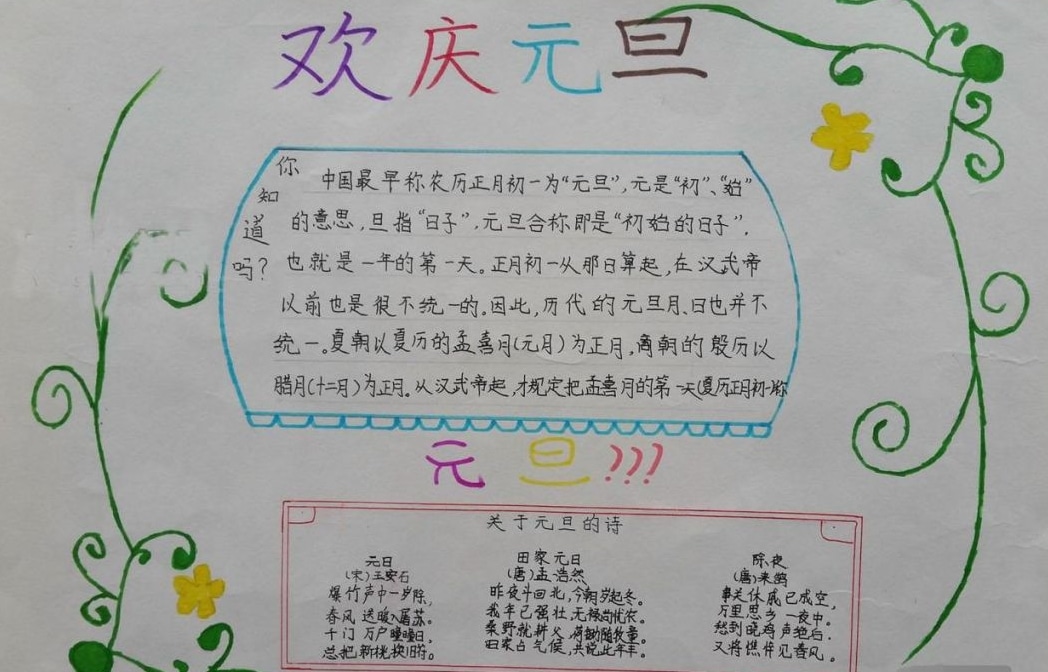 欢庆元旦
你知道吗?
中国最早称农历正月初一为“元旦”,元是“初”、“始”
的意思,旦指“日子”,元旦合称即是“初始的日子”,
也就是一年的第一天。正月初一从那日算起,在汉武帝
以前也是很不统一的。因此,历代的元旦月、日也并不
统一。夏朝以夏历的孟喜月(元月)为正月,商朝的殷历以
腊月(十二月)为正月。从汉武帝起,才规定把孟喜月的第一天(夏历正月初一)称
元旦???
关于元旦的诗
元日
(宋)王安石
爆竹声中一岁除,
春风送暖入屠苏。
千门万户曈曈日,
总把新桃换旧符。
田家元日
(唐)孟浩然
昨夜斗回北,今朝岁起冬。
我年已强壮,无禄尚忧农。
桑野就耕父,荷锄随牧童。
田家占气候,共说此年丰。
除夜
(唐)来鹄
事关休戚已成空,
万里思乡一夜中。
愁到晓鸡声绝后,
又将憔悴见春风。